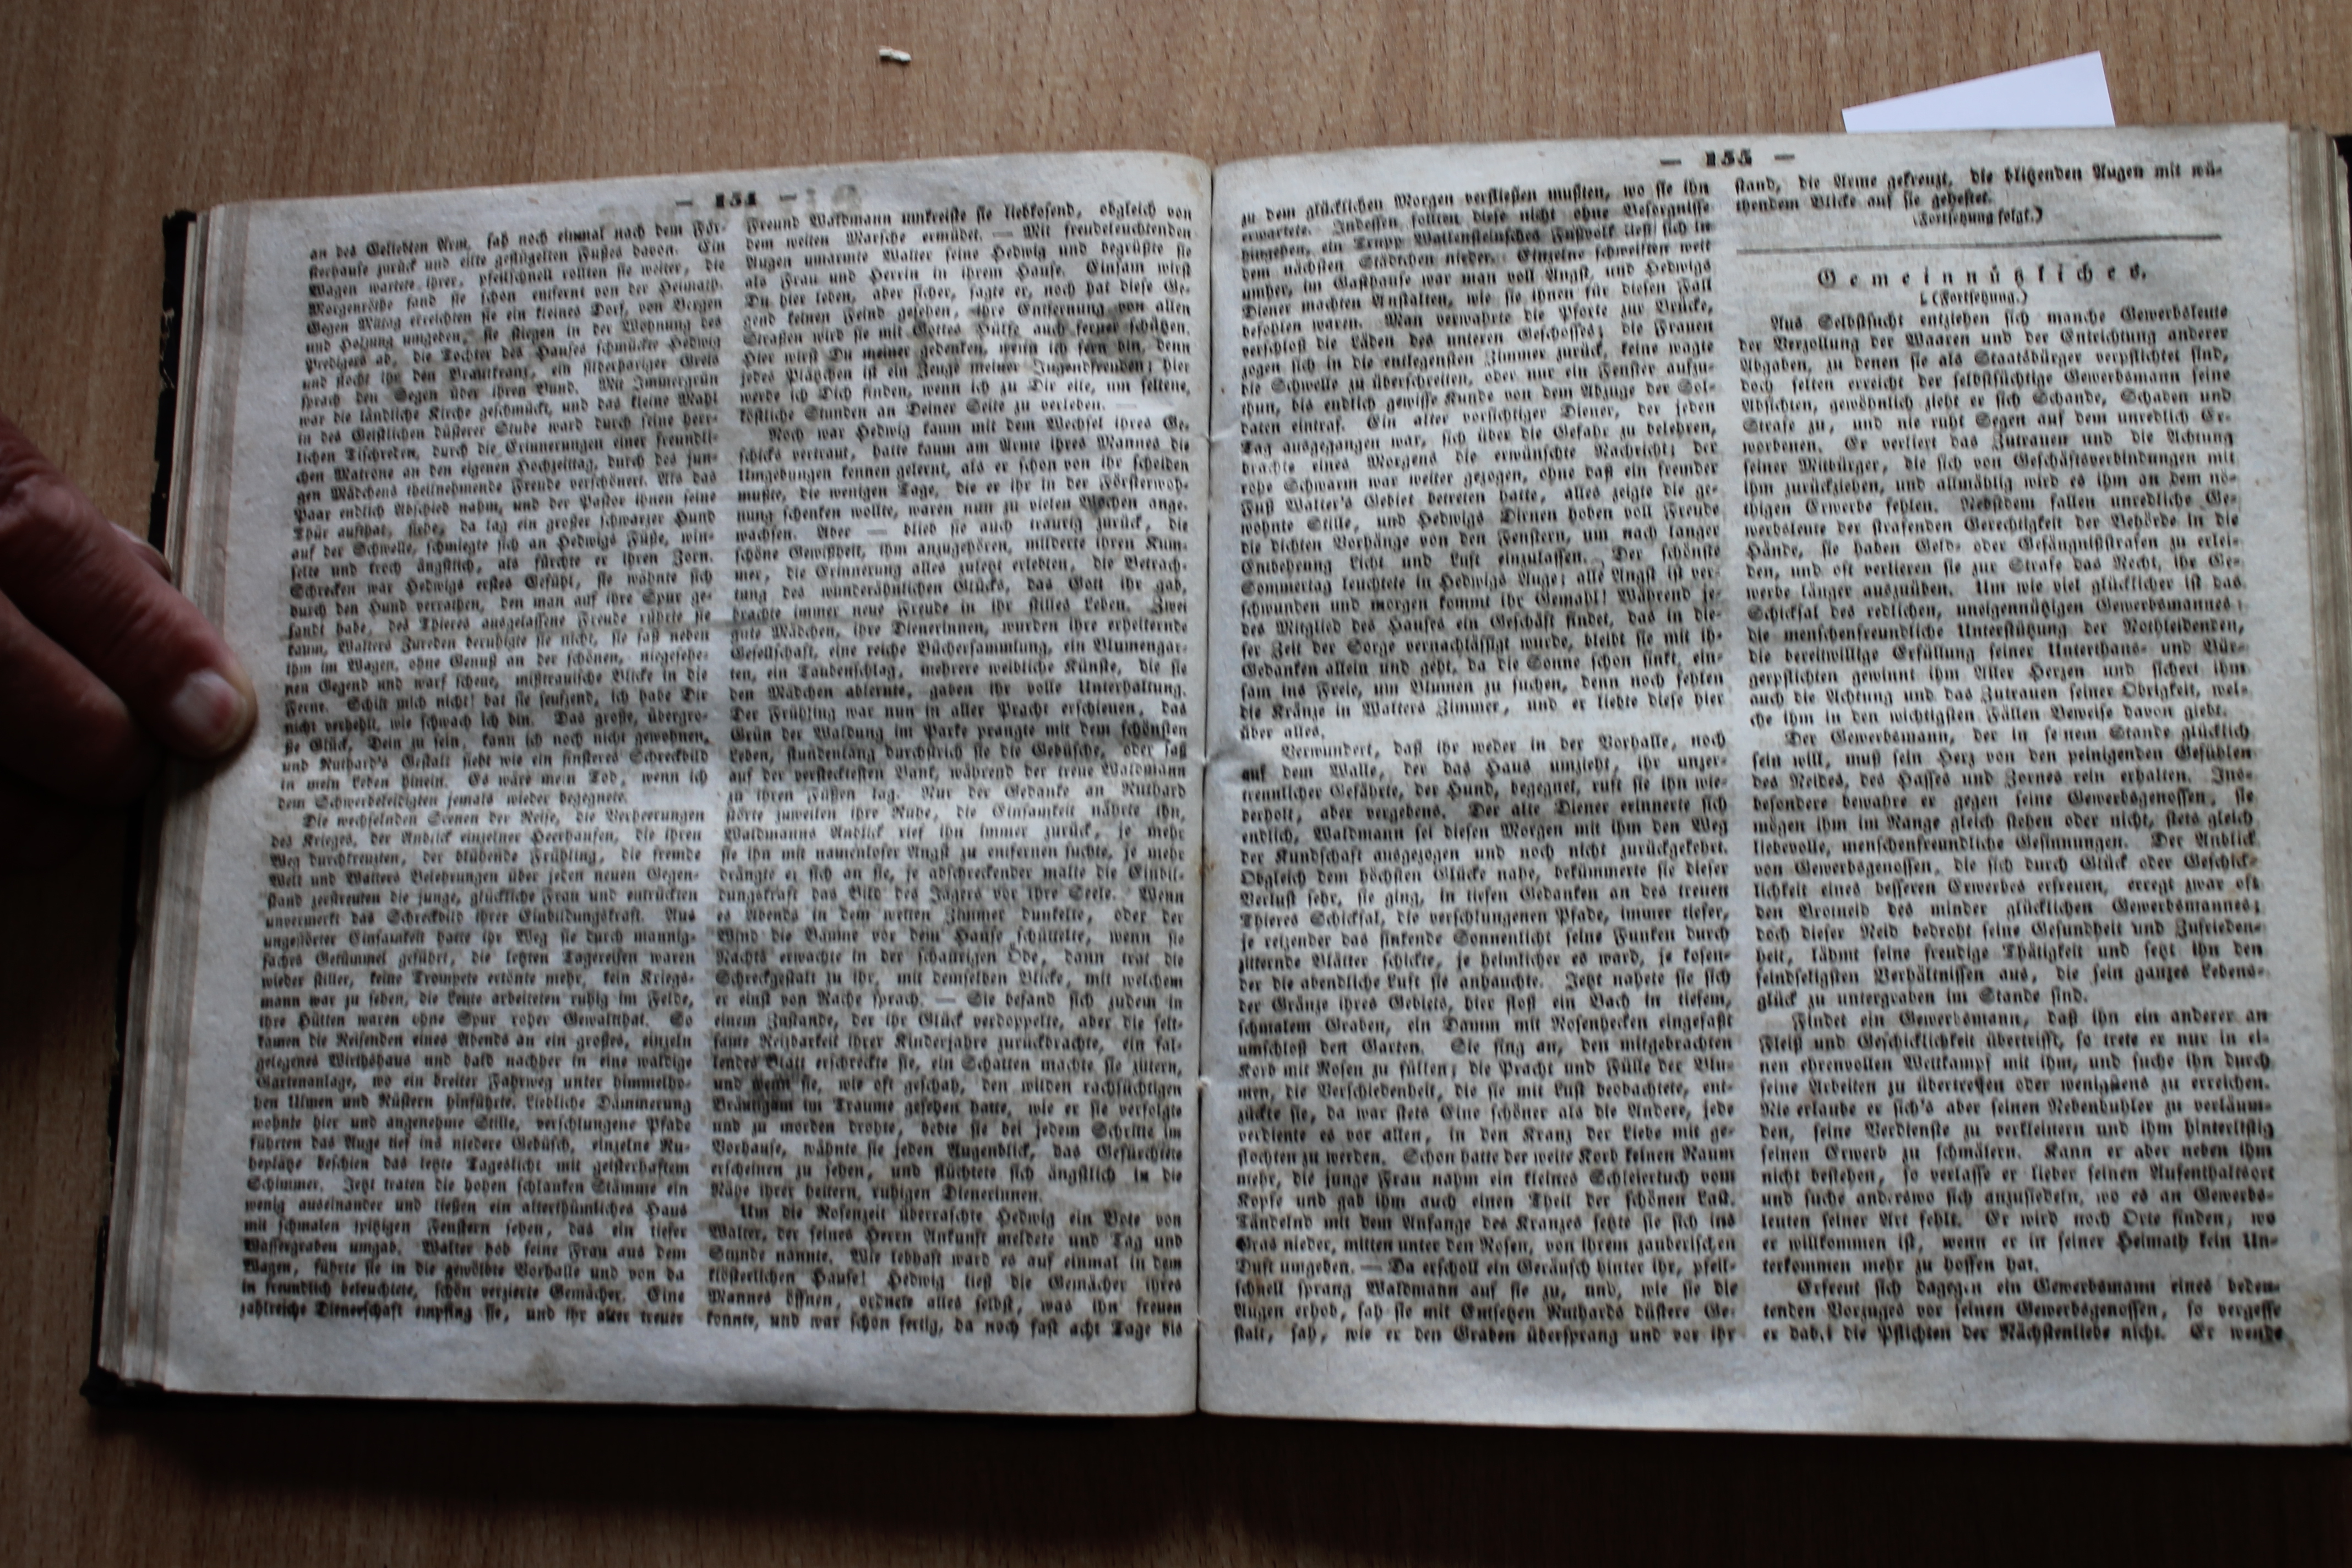 — 154 —
an des Geliebten Arm, sah noch einmal nach dem För-
sterhause zurück und eilte geflügelten Fußes davon. Ein
Wagen wartete ihrer, pfeilschnell rollten sie weiter, die
Morgenröthe fand sie schon entfernt von der Heimath.
Gegen Mittag erreichten sie ein kleines Dorf, von Bergen
und Holzung umgeben, sie stiegen in der Wohnung des
Predigers ab, die Tochter des Hauses schmückte Hedwig
und flocht ihr den Brautkranz, ein silberhariger Greis
sprach den Segen über ihren Bund. Mit Immergrün
war die ländliche Kirche geschmückt, und das kleine Mahl
in des Geistlichen düsterer Stube ward durch seine herz-
lichen Tischreden, durch die Erinnerungen einer freundli-
chen Matrone an den eigenen Hochzeittag, durch des jun-
gen Mädchens theilnehmende Freude verschönert. Als das
Paar endlich Abschied nahm, und der Pastor ihnen seine
Thür aufthat, siehe, da lag ein großer schwarzer Hund
auf der Schwelle, schmiegte sich an Hedwigs Füße, win-
selte und kroch ängstlich, als fürchte er ihren Zorn.
Schrecken war Hedwigs erstes Gefühl, sie wähnte sich
durch den Hund verrathen, den man auf ihre Spur ge-
sandt habe, des Thieres ausgelassene Freude rührte sie
kaum, Walters Zureden beruhigte sie nicht, sie saß neben
ihm im Wagen, ohne Genuß an der schönen, niegesehe-
nen Gegend und warf scheue, mißtrauische Blicke in die
Ferne. Schilt mich nicht! bat sie seufzend, ich habe Dir
nicht verhehlt, wie schwach ich bin. Das große, übergro-
ße Glück, Dein zu sein, kann ich noch nicht gewohnen,
und Ruthard's Gestalt sieht wie ein finsteres Schreckbild
in mein Leben hinein. Es wäre mein Tod, wenn ich
dem Schwerbeleidigten jemals wieder begegnete.
Die wechselnden Scenen der Reise, die Verheerungen
des Krieges, der Anblick einzelner Heerhaufen, die ihren
Weg durchkreuzten, der blühende Frühling, die fremde
Welt und Walters Belehrungen über jeden neuen Gegen-
stand zerstreuten die junge, glückliche Frau und entrückten
unvermerkt das Schreckbild ihrer Einbildungskraft. Aus
ungestörter Einsamkeit hatte ihr Weg sie durch mannig-
faches Getümmel geführt, die letzten Tagereisen waren
wieder stiller, keine Trompete ertönte mehr, kein Kriegs-
mann war zu sehen, die Leute arbeiteten ruhig im Felde,
ihre Hütten waren ohne Spur roher Gewaltthat. So
kamen die Reisenden eines Abends an ein großes, einzeln
gelegenes Wirthshaus und bald nachher in eine waldige
Gartenanlage, wo ein breiter Fahrweg unter himmelho-
hen Ulmen und Rüstern hinführte. Liebliche Dämmerung
wohnte hier und angenehme Stille, verschlungene Pfade
führten das Auge tief ins niedere Gebüsch, einzelne Ru-
heplätze beschien das letzte Tageslicht mit geisterhaftem
Schimmer. Jetzt traten die hohen schlanken Stämme ein
wenig auseinander und ließen ein alterthümliches Haus
mit schmalen spitzigen Fenstern sehen, das ein tiefer
Wassergraben umgab. Walter hob seine Frau aus dem
Wagen, führte sie in die gewölbte Vorhalle und von da
in freundlich beleuchtete, schön verzierte Gemächer. Eine
zahlreiche Dienerschaft empfing sie, und ihr alter treuer
Freund Waldmann umkreiste sie liebkosend, obgleich von
dem weiten Marsche ermüdet. — Mit freudeleuchtenden
Augen umarmte Walter seine Hedwig und begrüßte sie
als Frau und Herrin in ihrem Hause. Einsam wirst
Du hier leben, aber sicher, sagte er, noch hat diese Ge-
gend keinen Feind gesehen, ihre Entfernung von allen
Straßen wird sie mit Gottes Hülfe auch ferner schützen.
Hier wirst Du meiner gedenken, wenn ich fern bin, denn
jedes Plätzchen ist ein Zeuge meiner Jugendfreuden; hier
werde ich Dich finden, wenn ich zu Dir eile, um seltene,
köstliche Stunden an Deiner Seite zu verleben. —
Noch war Hedwig kaum mit dem Wechsel ihres Ge-
schicks vertraut, hatte kaum am Arme ihres Mannes die
Umgebungen kennen gelernt, als er schon von ihr scheiden
mußte, die wenigen Tage, die er ihr in der Försterwoh-
nung schenken wollte, waren nun zu vielen Wochen ange-
wachsen. Aber — blieb sie auch traurig zurück, die
schöne Gewißheit, ihm anzugehören, milderte ihren Kum-
mer, die Erinnerung alles zuletzt erlebten, die Betrach-
tung des wunderähnlichen Glücks, das Gott ihr gab,
brachte immer neue Freude in ihr stilles Leben. Zwei
gute Mädchen, ihre Dienerinnen, wurden ihre erheiternde
Gesellschaft, eine reiche Büchersammlung, ein Blumengar-
ten, ein Taubenschlag, mehrere weibliche Künste, die sie
den Mädchen ablernte, gaben ihr volle Unterhaltung.
Der Frühling war nun in aller Pracht erschienen, das
Grün der Waldung im Parke prangte mit dem schönsten
Leben, stundenlang durchstrich sie die Gebüsche, oder saß
auf der verstecktesten Bank, während der treue Waldmann
zu ihren Füßen lag. Nur der Gedanke an Ruthard
störte zuweilen ihre Ruhe, die Einsamkeit nährte ihn,
Waldmanns Anblick rief ihn immer zurück, je mehr
sie ihn mit namenloser Angst zu entfernen suchte, je mehr
drängte er sich an sie, je abschreckender malte die Einbil-
dungskraft das Bild des Jägers vor ihre Seele. Wenn
es Abends in dem weiten Zimmer dunkelte, oder der
Wind die Bäume vor dem Hause schüttelte, wenn sie
Nachts erwachte in der schaurigen Öde, dann trat die
Schreckgestalt zu ihr, mit demselben Blicke, mit welchem
er einst von Rache sprach. — Sie befand sich zudem in
einem Zustande, der ihr Glück verdoppelte, aber die selt-
same Reizbarkeit ihrer Kinderjahre zurückbrachte, ein fal-
lendes Blatt erschreckte sie, ein Schatten machte sie zittern,
und wenn sie, wie oft geschah, den wilden rachsüchtigen
Bräutigam im Traume gesehen hatte, wie er sie verfolgte
und zu morden drohte, bebte sie bei jedem Schritte im
Vorhause, wähnte sie jeden Augenblick, das Gefürchtete
erscheinen zu sehen, und flüchtete sich ängstlich in die
Nähe ihrer heitern, ruhigen Dienerinnen.
Um die Rosenzeit überraschte Hedwig ein Bote von
Walter, der seines Herrn Ankunft meldete und Tag und
Stunde nannte. Wie lebhaft ward es auf einmal in dem
klösterlichen Hause! Hedwig ließ die Gemächer ihres
Mannes öffnen, ordnete alles selbst, was ihn freuen
konnte, und war schon fertig, da noch fast acht Tage bis
— 155 —
zu dem glücklichen Morgen verfließen mußten, wo sie ihn
erwartete. Indessen sollten diese nicht ohne Besorgnisse
hingehen, ein Trupp Wallensteinsches Fußvolk ließ sich in
dem nächsten Städtchen nieder. Einzelne schweiften weit
umher, im Gasthause war man voll Angst, und Hedwigs
Diener machten Anstalten, wie sie ihnen für diesen Fall
befohlen waren. Man verwahrte die Pforte zur Brücke,
verschloß die Läden des unteren Geschosses; die Frauen
zogen sich in die entlegensten Zimmer zurück, keine wagte
die Schwelle zu überschreiten, oder nur ein Fenster aufzu-
thun, bis endlich gewisse Kunde von dem Abzuge der Sol-
daten eintraf. Ein alter vorsichtiger Diener, der jeden
Tag ausgegangen war, sich über die Gefahr zu belehren,
brachte eines Morgens die erwünschte Nachricht; der
rohe Schwarm war weiter gezogen, ohne daß ein fremder
Fuß Walter's Gebiet betreten hatte, alles zeigte die ge-
wohnte Stille, und Hedwigs Dirnen hoben voll Freude
die dichten Vorhänge von den Fenstern, um nach langer
Entbehrung Licht und Luft einzulassen. Der schönste
Sommertag leuchtete in Hedwigs Auge; alle Angst ist ver-
schwunden und morgen kommt ihr Gemahl! Während je-
des Mitglied des Hauses ein Geschäft findet, das in die-
ser Zeit der Sorge vernachlässigt wurde, bleibt sie mit ih-
Gedanken allein und geht, da die Sonne schon sinkt, ein-
sam ins Freie, um Blumen zu suchen, denn noch fehlen
die Kränze in Walters Zimmer, und er liebte diese hier
über alles.
Verwundert, daß ihr weder in der Vorhalle, noch
auf dem Walle, der das Haus umzieht, ihr unzer-
trennlicher Gefährte, der Hund, begegnet, ruft sie ihn wie-
derholt, aber vergebens. Der alte Diener erinnerte sich
endlich, Waldmann sei diesen Morgen mit ihm den Weg
der Kundschaft ausgezogen und noch nicht zurückgekehrt.
Obgleich dem höchsten Glücke nahe, bekümmerte sie dieser
Verlust sehr, sie ging, in tiefen Gedanken an des treuen
Thieres Schicksal, die verschlungenen Pfade, immer tiefer,
je reizender das sinkende Sonnenlicht seine Funken durch
zitternde Blätter schickte, je heimlicher es ward, je kosen-
der die abendliche Luft sie anhauchte. Jetzt nahete sie sich
der Gränze ihres Gebiets, hier floß ein Bach in tiefem,
schmalem Graben, ein Damm mit Rosenhecken eingefaßt
umschloß den Garten. Sie fing an, den mitgebrachten
Korb mit Rosen zu füllen; die Pracht und Fülle der Blu-
men, die Verschiedenheit, die sie mit Lust beobachtete, ent-
zückte sie, da war stets Eine schöner als die Andere, jede
verdiente es vor allen, in den Kranz der Liebe mit ge-
flochten zu werden. Schon hatte der weite Korb keinen Raum
mehr, die junge Frau nahm ein kleines Schleiertuch vom
Kopfe und gab ihm auch einen Theil der schönen Last.
Tändelnd mit dem Anfange des Kranzes setzte sie sich ins
Gras nieder, mitten unter den Rosen, von ihrem zauberischen
Duft umgeben. — Da erscholl ein Geräusch hinter ihr, pfeil-
schnell sprang Waldmann auf sie zu, und, wie sie die
Augen erhob, sah sie mit Entsetzen Ruthards düstere Ge-
stalt, sah, wie er den Graben übersprang und vor ihr
stand, die Arme gekreuzt, die blitzenden Augen mit wü-
thendem Blicke auf sie geheftet.
(Fortsetzung folgt.)
Gemeinnütziges.
(Fortsetzung.)
Aus Selbstsucht entziehen sich manche Gewerbsleute
der Verzollung der Waaren und der Entrichtung anderer
Abgaben, zu denen sie als Staatsbürger verpflichtet sind,
doch selten erreicht der selbstsüchtige Gewerbsmann seine
Absichten, gewöhnlich zieht er sich Schande, Schaden und
Strafe zu, und nie ruht Segen auf dem unredlich Er-
worbenen. Er verliert das Zutrauen und die Achtung
seiner Mitbürger, die sich von Geschäftsverbindungen mit
ihm zurückziehen, und allmählig wird es ihm an dem nö-
thigen Erwerbe fehlen. Nebstdem fallen unredliche Ge-
werbsleute der strafenden Gerechtigkeit der Behörde in die
Hände, sie haben Geld- oder Gefängnißstrafen zu erlei-
den, und oft verlieren sie zur Strafe das Recht, ihr Ge-
werbe länger auszuüben. Um wie viel glücklicher ist das
Schicksal des redlichen, uneigennützigen Gewerbsmannes;
die menschenfreundliche Unterstützung der Nothleidenden,
die bereitwillige Erfüllung seiner Unterthans- und Bür-
gerpflichten gewinnt ihm Aller Herzen und sichert ihm
auch die Achtung und das Zutrauen seiner Obrigkeit, wel-
che ihm in den wichtigsten Fällen Beweise davon giebt.
Der Gewerbsmann, der in se nem Stande glücklich
sein will, muß sein Herz von den peinigenden Gefühlen
des Neides, des Hasses und Zornes rein erhalten. Ins-
besondere bewahre er gegen seine Gewerbsgenossen, sie
mögen ihm im Range gleich stehen oder nicht, stets gleich
liebevolle, menschenfreundliche Gesinnungen. Der Anblick
von Gewerbsgenossen, die sich durch Glück oder Geschick-
lichkeit eines besseren Erwerbes erfreuen, erregt zwar oft
den Brotneid des minder glücklichen Gewerbsmannes;
doch dieser Neid bedroht seine Gesundheit und Zufrieden-
heit, lähmt seine freudige Thätigkeit und setzt ihn den
feindseligsten Verhältnissen aus, die sein ganzes Lebens-
glück zu untergraben im Stande sind.
Findet ein Gewerbsmann, daß ihn ein anderer an
Fleiß und Geschicklichkeit übertrifft, so trete er nur in ei-
nen ehrenvollen Wettkampf mit ihm, und suche ihn durch
seine Arbeiten zu übertreffen oder wenigstens zu erreichen.
Nie erlaube er sich's aber seinen Nebenbuhler zu verläum-
den, seine Verdienste zu verkleinern und ihm hinterlistig
seinen Erwerb zu schmälern. Kann er aber neben ihm
nicht bestehen, so verlasse er lieber seinen Aufenthaltsort
und suche anderswo sich anzusiedeln, wo es an Gewerbs-
leuten seiner Art fehlt. Er wird noch Orte finden, wo
er willkommen ist, wenn er in seiner Heimath kein Un-
terkommen mehr zu hoffen hat.
Erfreut sich dagegen ein Gewerbsmann eines beden-
tenden Vorzuges vor seinen Gewerbsgenossen, so vergesse
er dabei die Pflichten der Nächstenliebe nicht. Er wende